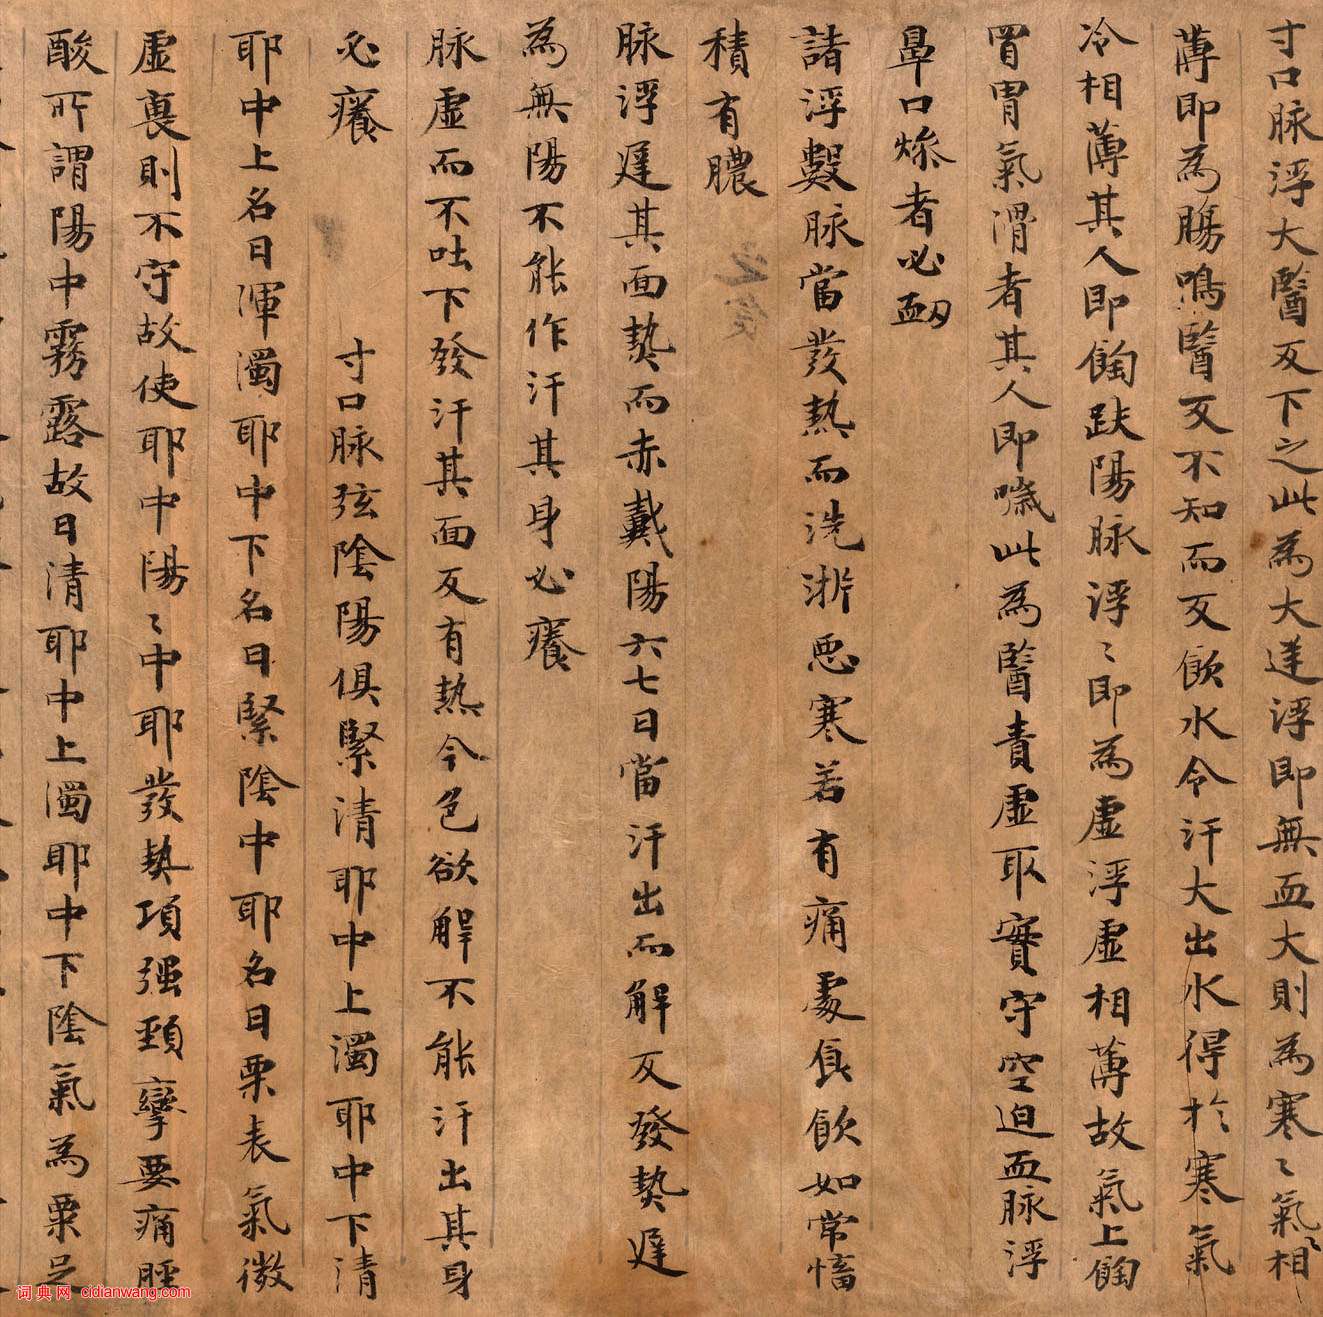 寸口脉浮大醫反下之此為大逆浮即無血大則為寒〻氣相
薄即為腸鳴醫反不知而反飲水令汗大出水得於寒氣
冷相薄其人即䭇趺陽脉浮〻即為虛浮虛相薄故氣上䭇
胃胃氣滑者其人即噦此為醫責虛取實守空迫血脉浮
鼻口燥者必衂
諸浮數脉當發熱而洗淅惡寒若有痛處食飲如常慉
積有膿
脉浮遲其面熱而赤戴陽六七日當汗出而解反發熱遲
為無陽不能作汗其身必癢
脉虛而不吐下發汗其面反有熱令色欲解不能汗出其身
必癢
寸口脉弦陰陽俱緊清耶中上濁耶中下清
耶中上名曰渾濁耶中下名曰緊陰中耶名曰栗表氣微
虛裏則不守故使耶中陽〻中耶發熱項強頸攣要痛脛
酸所謂陽中霧露故曰清耶中上濁耶中下陰氣為栗足
词典网 cidianwang.com